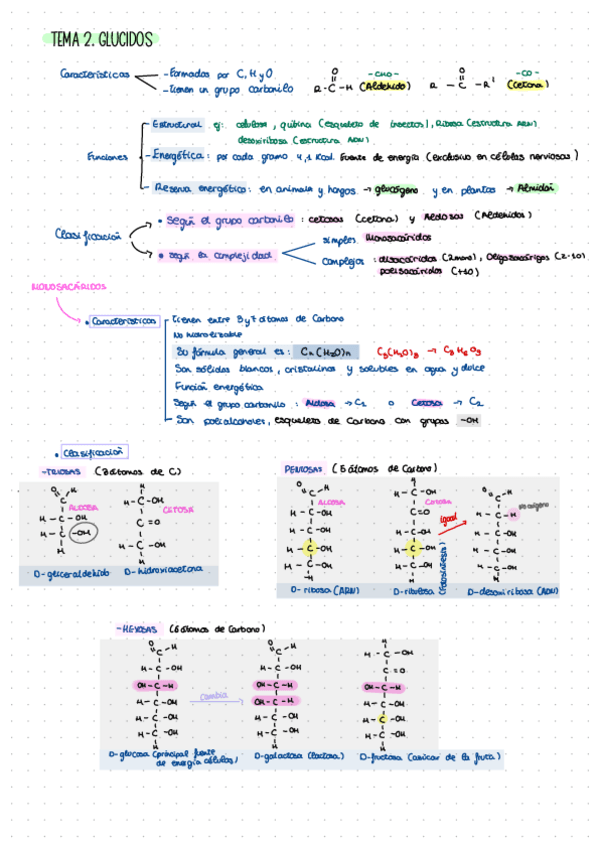 TEMA 2. GLUCIDOS
Características
-Formados por C, H y O
-tienen un grupo carbonilo
O
R-C-H (Aldehido)
-CHO-
O
R-C-R' (cetona)
-CO-
Funciones
Estructural ej: celulosa, quitina (esqueleto de insectos), Ribosa (estructura ARN)
desoxiribosa (estructura ADN)
-Energética: por cada gramo 4,1 Kcal. Fuente de energía (exclusivo en células nerviosas)
Reserva energética: en animales y hongos → glucógeno y en plantas → Almidón
Clasificación
• Según el grupo carbonilo: cetosas (cetona) y Aldosas (Aldehidos)
• según la complejidad
simples: Monosacáridos
complejos: disacáridos (2mono), Oligosacáridos (2-10)
polisacáridos (+10)
MONOSACÁRIDOS
• Características
Tienen entre 3 y 7 átomos de Carbono
No hidrolizable
Su fórmula general es: Cn(H2O)n C3(H2O)3 → C3H6O3
Son sólidos blancos, cristalinos y solubles en agua y dulce
Función energética
Según el grupo carbonilo: Aldosa → C1 o Cetosa → C2
Son polialcoholes, esqueleto de Carbono con grupos -OH
• Clasificación
-TRIOSAS (3 átomos de C)
ALDOSA
CETOSA
O H
C
H-C-OH
H-C-OH
H
D-gliceraldehido
H
H-C-OH
C=O
H-C-OH
H
D-hidroxiacetona
PENTOSAS (5 átomos de Carbono)
ALDOSA
CETOSA
O H
C
H-C-OH
H-C-OH
H-C-OH
H-C-OH
H
D-ribosa (ARN)
H
H-C-OH
C=O
H-C-OH
H-C-OH
H-C-OH
H
D-ribulosa (fotosíntesis)
igual
O H
C
H-C-H
sin oxígeno
H-C-OH
H-C-OH
H-C-OH
H
D-desoxiribosa (ADN)
-HEXOSAS (6 átomos de Carbono)
O H
C
H-C-OH
OH-C-H
H-C-OH
H-C-OH
H-C-OH
H
D-glucosa (principal fuente
de energía células)
cambia
O H
C
H-C-OH
OH-C-H
OH-C-H
H-C-OH
H-C-OH
H
D-galactosa (lactosa)
H
H-C-OH
C=O
OH-C-H
H-C-OH
H-C-OH
H-C-OH
H
D-fructosa (azúcar de la fruta)